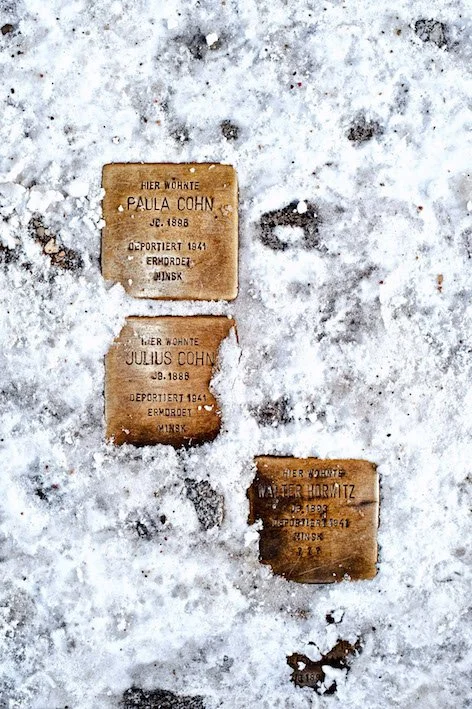 HIER WOHNTE
PAULA COHN
JG. 1898
DEPORTIERT 1941
ERMORDET
MINSK
HIER WOHNTE
JULIUS COHN
JG. 1886
DEPORTIERT 1941
ERMORDET
MINSK
HIER WOHNTE
WALTER HORWITZ
JG.
DEPORTIERT 1941
MINSK
? ? ?